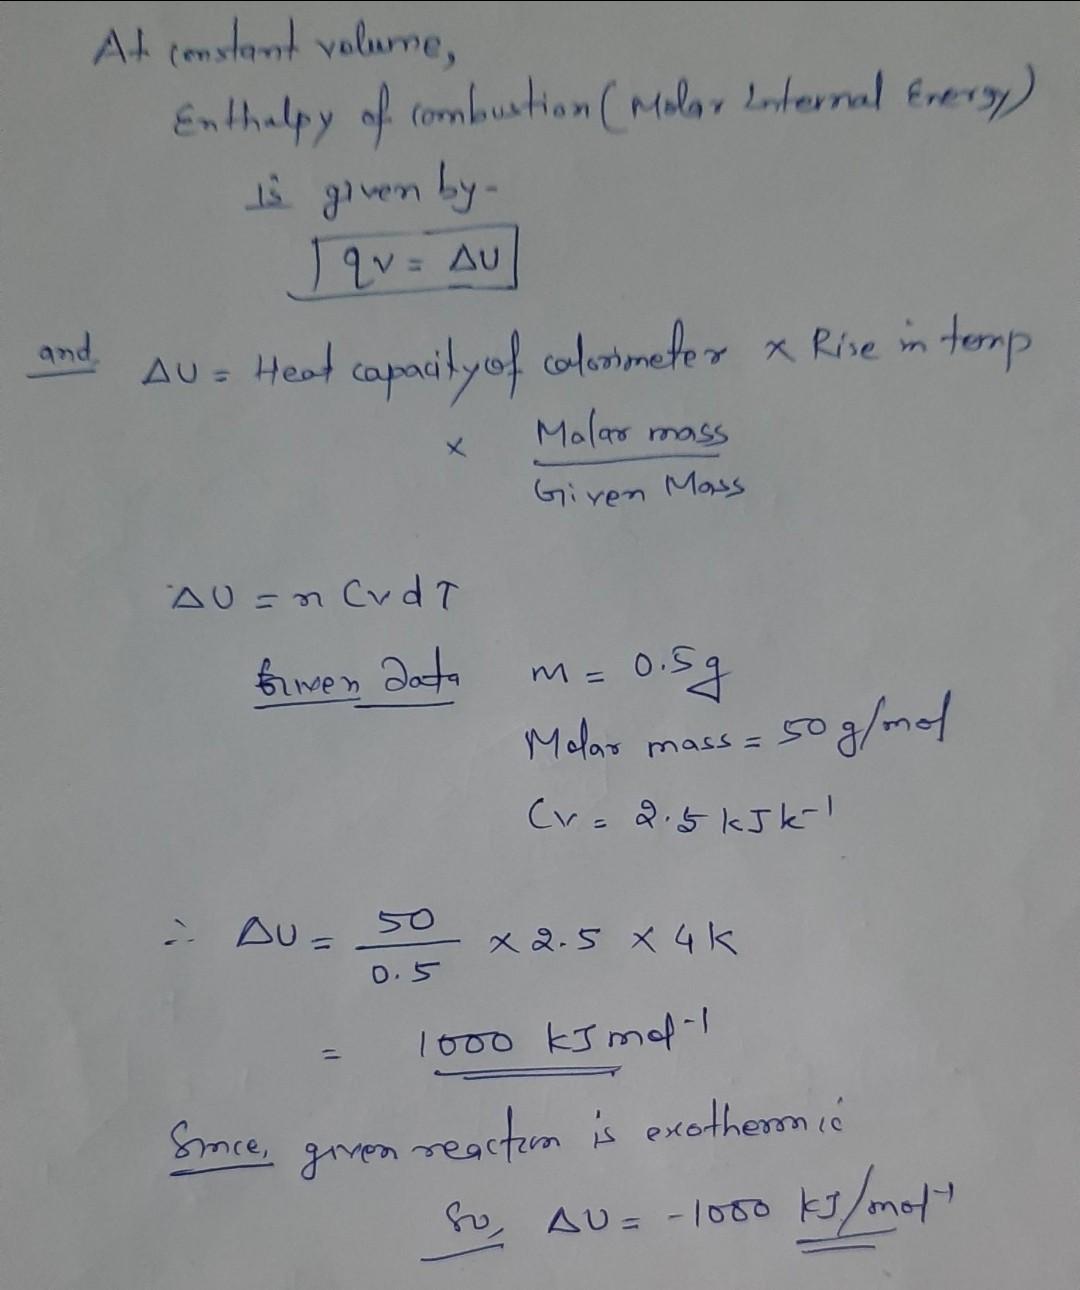 At constant volume,
Enthalpy of combustion (Molar Internal Energy)
is given by -
qv = ΔU
and ΔU = Heat capacity of calorimeter × Rise in temp
× Molar mass
Given Mass
ΔU = n Cv dT
Given Data m = 0.5g
Molar mass = 50 g/mol
Cv = 2.5 kJ k-1
∴ ΔU = 50/0.5 × 2.5 × 4 K
= 1000 kJ mol-1
Since, given reaction is exothermic
So, ΔU = -1000 kJ/mol-1